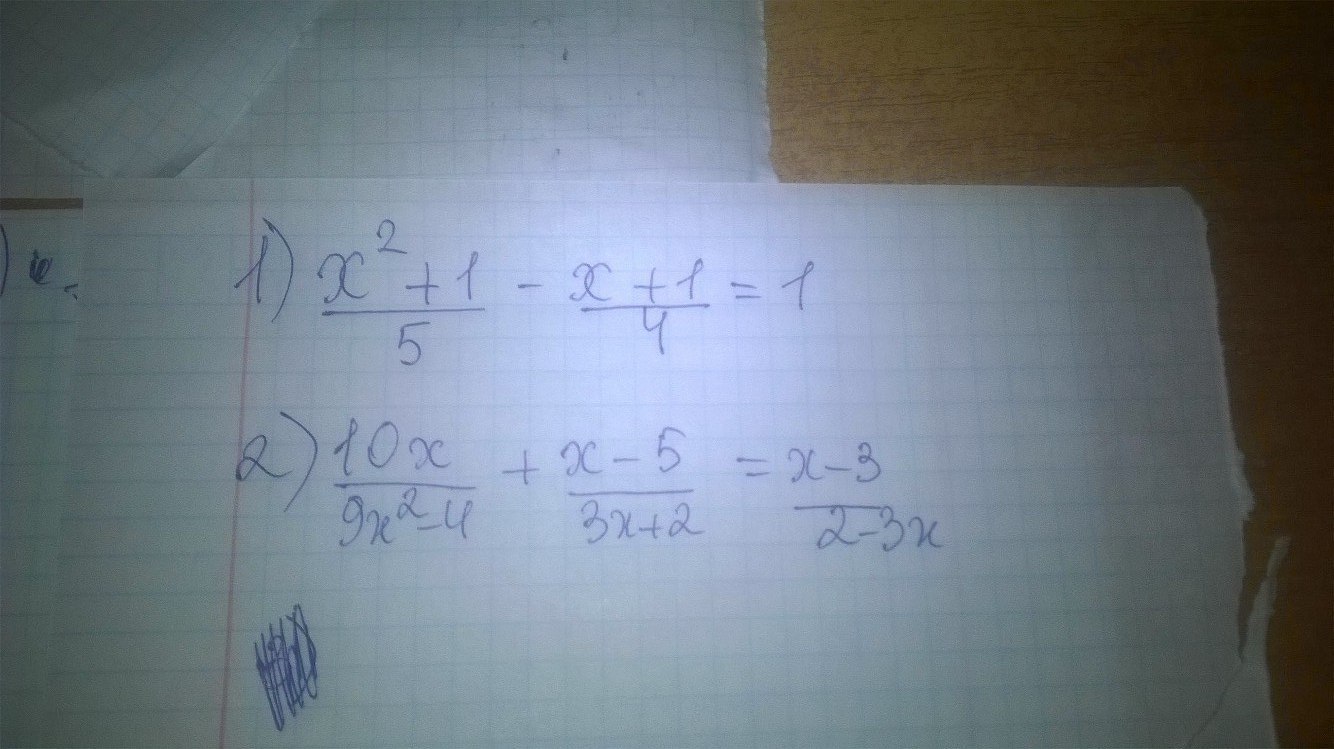 1) \frac{x^2+1}{5} - \frac{x+1}{4} = 1
2) \frac{10x}{9x^2-4} + \frac{x-5}{3x+2} = \frac{x-3}{2-3x}